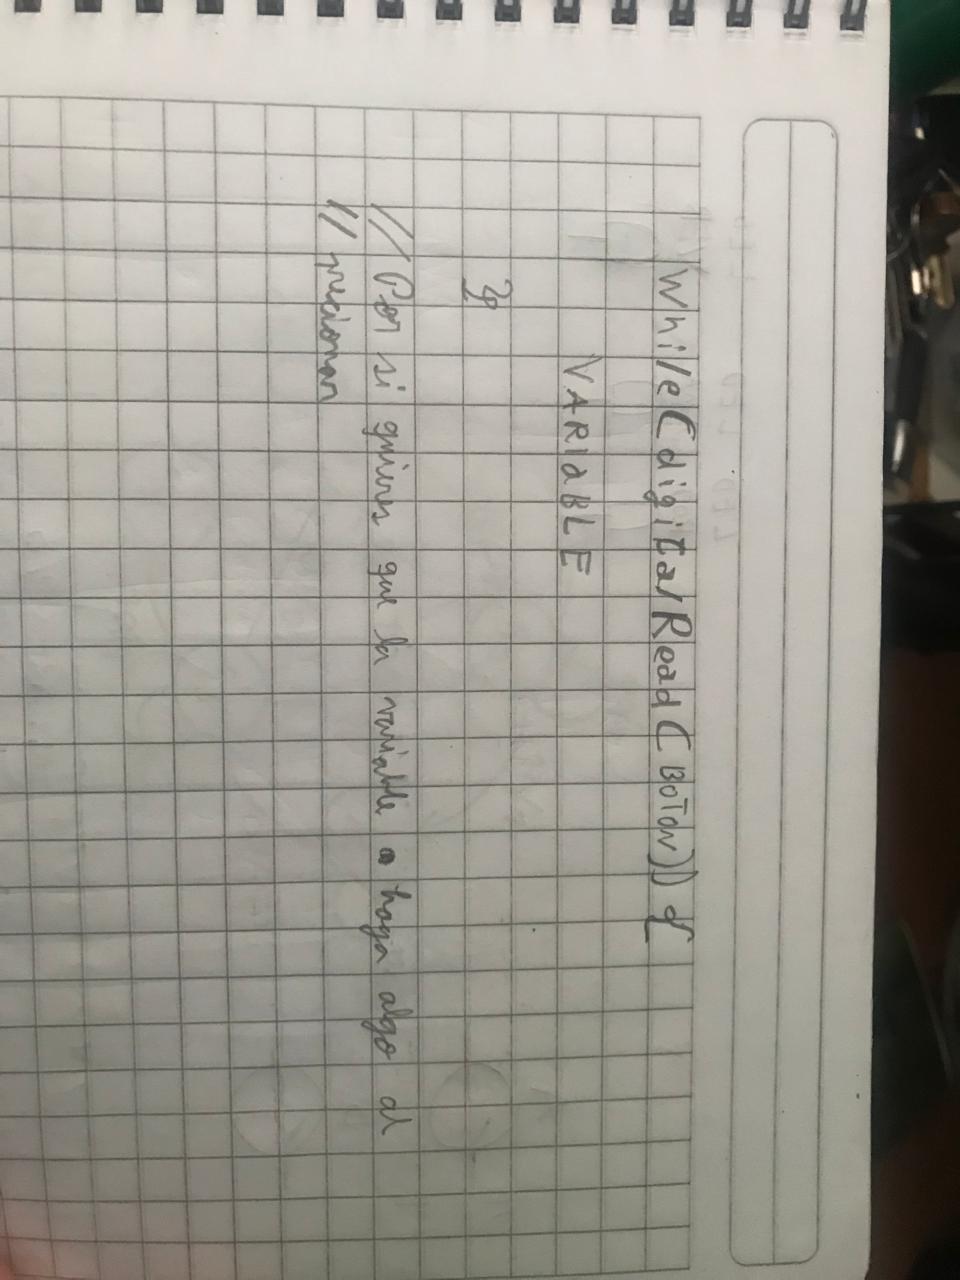 While(digitalRead(BOTON)){
VARIABLE
}
// Por si quieres que la variable haga algo al
// precionar